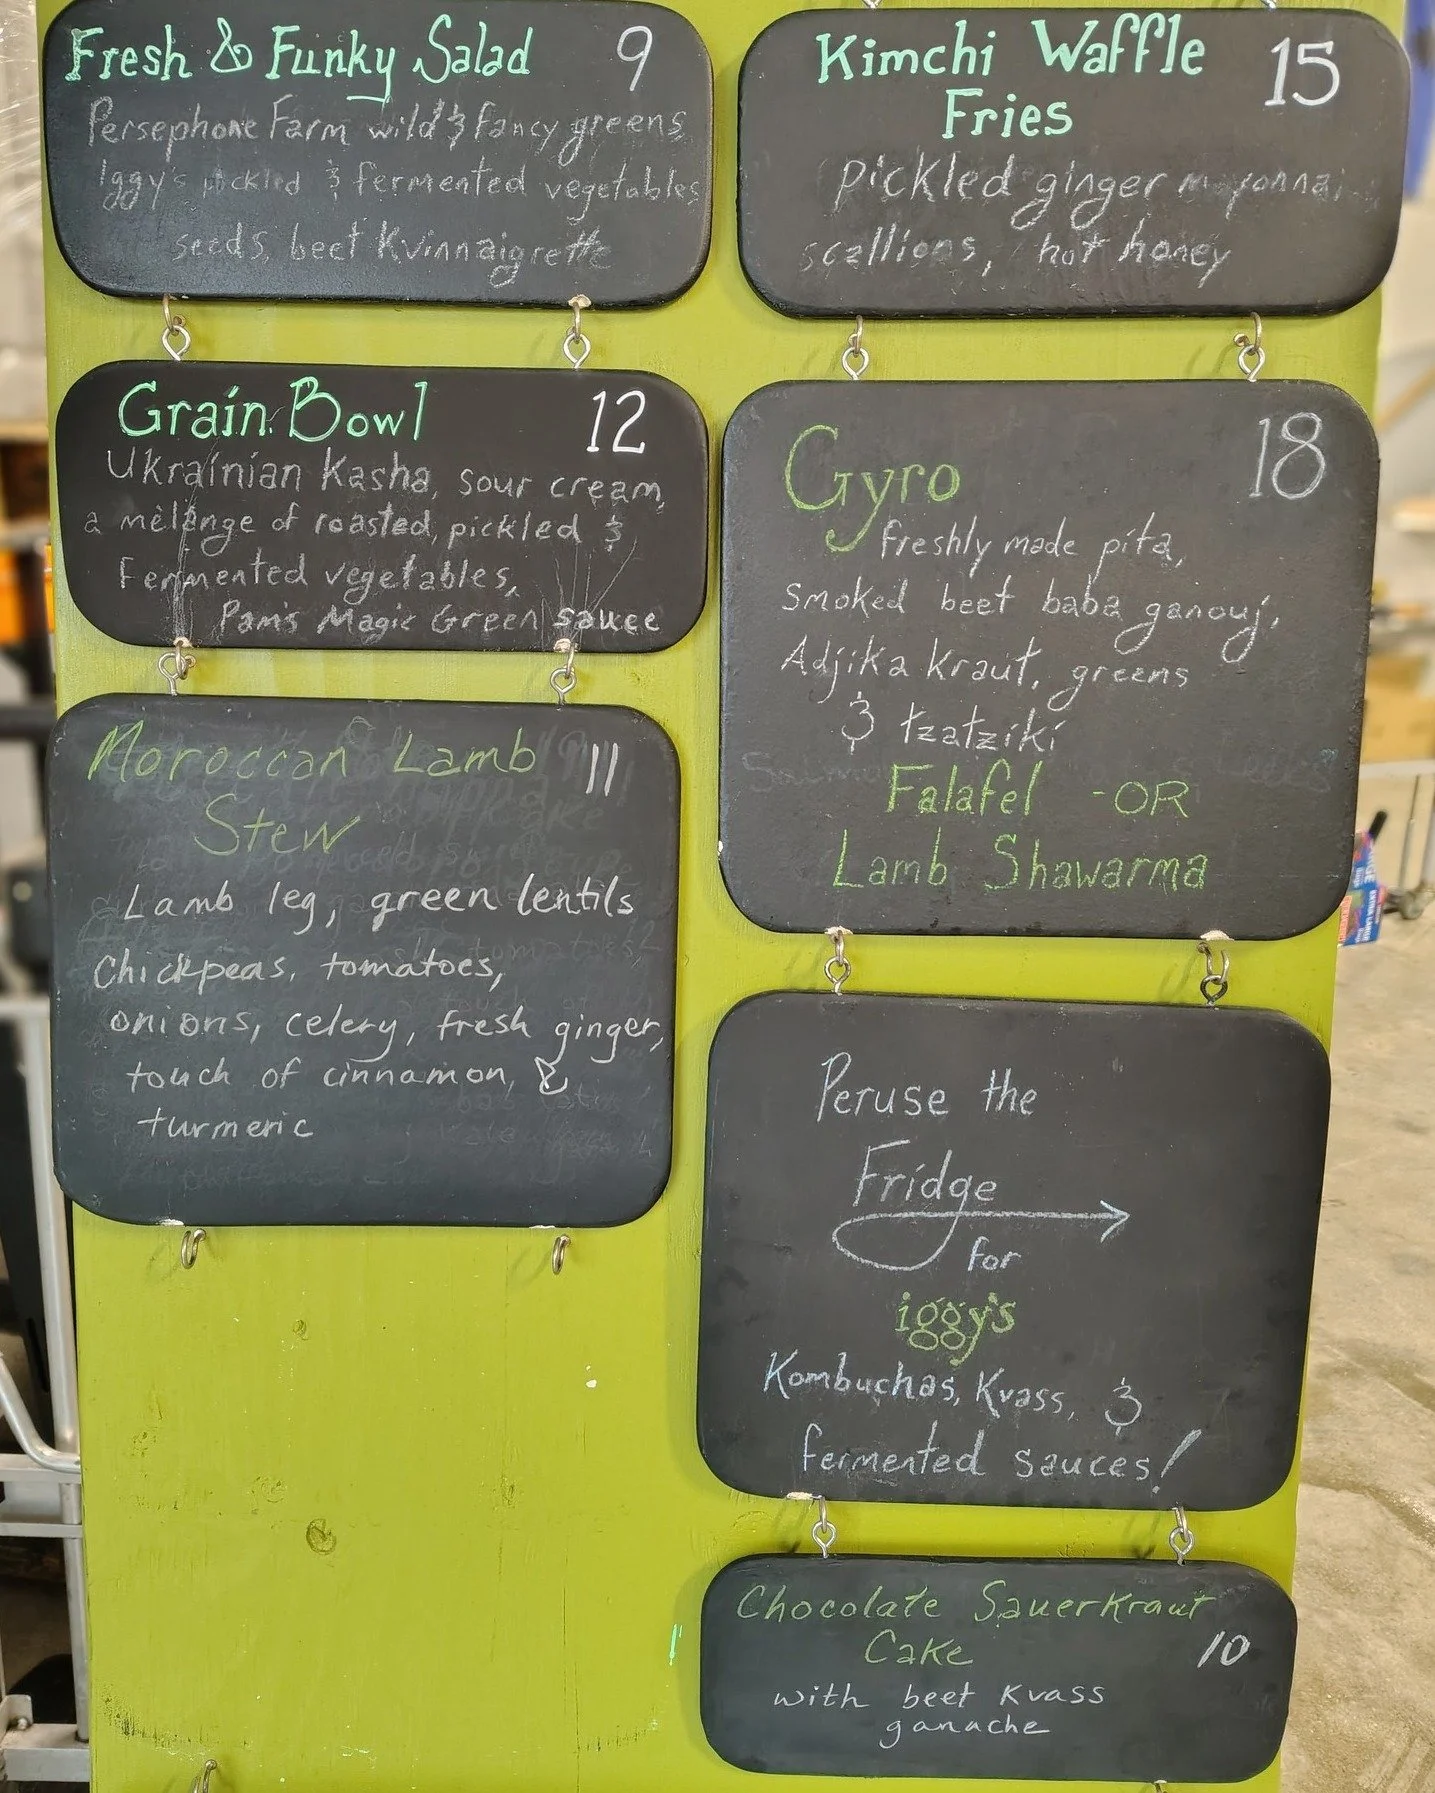 Fresh & Funky Salad 9
Persephone Farm wild & fancy greens
Iggy's pickled & fermented vegetables
seeds, beet Kvinnaigrette
Grain Bowl 12
Ukrainian Kasha, sour cream,
a mèlange of roasted, pickled &
Fermented vegetables,
Pam's Magic Green sauce
Moroccan Lamb 11
Stew
Lamb leg, green lentils
Chickpeas, tomatoes,
onions, celery, fresh ginger,
touch of cinnamon, &
turmeric
Kimchi Waffle 15
Fries
pickled ginger
scallions, hot honey
Gyro 18
freshly made pita,
smoked beet baba ganouj,
Adjika kraut, greens
& tzatziki
Falafel - OR
Lamb Shawarma
Peruse the
Fridge
for
iggy's
Kombuchas, Kvass, &
fermented sauces!
Chocolate Sauerkraut
Cake 10
with beet Kvass
ganache